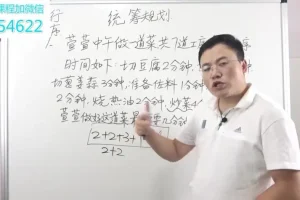 课程加微信
54622
统筹规划
萱萱中午做一道菜共7道工
时间如下:切豆腐2分钟,
切葱姜蒜3分钟,准备佐料1分钟
2分钟,烧热油2分钟,炒菜4
萱萱做好这道菜最 要几分钟
2+2+3+1
2+2